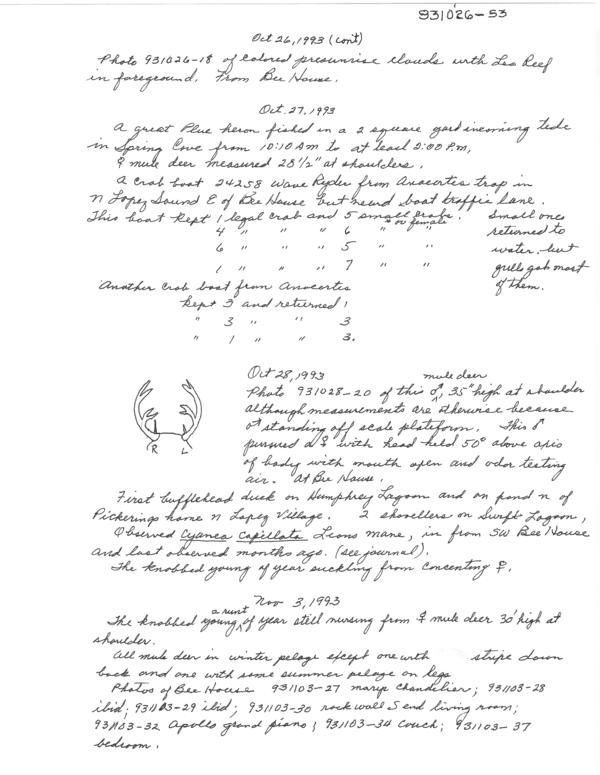 931026-53
Oct 26, 1993 (cont)
Photo 931026-18 of colored presunrise clouds with Leo Reef
in foreground. From Bee House.
Oct. 27, 1993
A great Blue heron fished in a 2 square yard incoming tide
in Spring Cove from 10:10 Am to at least 2:00 P.m,
♀ mule deer measured 28 1/2" at shoulders.
A crab boat 24258 Wave Ryder from Anacortes trap in
N Lopez Sound E of Bee House but neard boat traffic lane.
This boat kept 1 legal crab and 5 small crabs or female. Small ones
4 " " " 6 " " returned to
6 " " " 5 " " water, but
1 " " " 7 " " gulls gob most
of them.
Another crab boat from Anacortes
kept 3 and returned 1
" 3 " " 3
" 1 " " 3.
Oct 28, 1993
Photo 931028-20 of this ♂ mule deer 35" high at shoulder
although measurements are otherwise because
of standing off scale plateform. This ♂
pursued a ♀ with head held 50° above axis
of body with mouth open and odor testing
air. At Bee House.
R L
First bufflehead duck on Humphrey Lagoon and on pond n of
Pickerings home N Lopez Village. 2 shovellers on Swift Lagoon,
Observed Cyanea Capillata Lions mane, in from SW Bee House
and last observed months ago. (see journal).
The knobbed young of year suckling from concenting ♀.
Nov 3, 1993
The knobbed young a runt of year still nursing from ♀ mule deer 30' high at
shoulder.
All mule deer in winter pelage except one with stripe down
back and one with some summer pelage on legs
Photos of Bee House 931103-27 chandilier; 931103-28
ibid; 931103-29 ibid; 931103-30 rock wall S end living room;
931103-32 Apollo grand piano; 931103-34 Couch; 931103-37
bedroom.